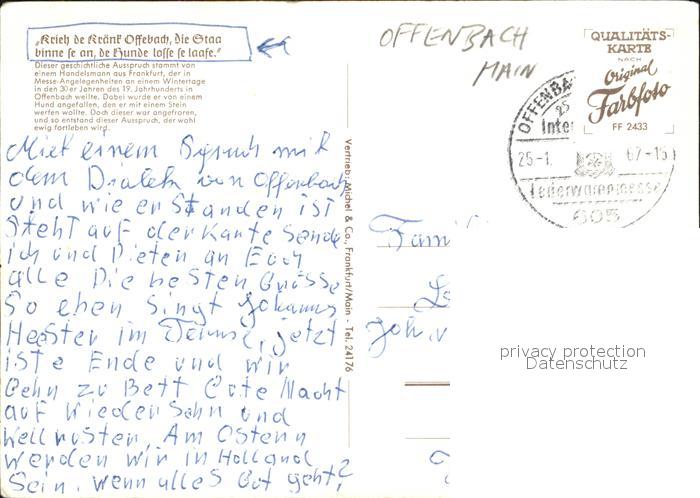 „Krieh de Kränk Offebach, die Staa
binne se an, de Hunde losse se laafe.“
Dieser geschichtliche Ausspruch stammt von
einem Handelsmann aus Frankfurt, der in
Messe-Angelegenheiten an einem Wintertage
in den 30er Jahren des 19. Jahrhunderts in
Offenbach weilte. Dabei wurde er von einem
Hund angefallen, den er mit einem Stein
werfen wollte. Doch dieser war angefroren,
und so entstand dieser Ausspruch, der wohl
ewig fortleben wird.
Miet einem Spruch mit
dem Dialek von Offenbach
und wie er Standen ist
Steht auf der Karte Sende
ich und Dieten an Euch
alle Die besten Grüsse
So eben Singt Johannes
Heester im Ferns., jetzt
iste Ende und wir
Gehn zu Bett Gute Nacht
auf wieder Sehn und
Am Ostern
werden wir in Holland
Sein. wenn alles Gut geht?
Vertrieb: Michel & Co., Frankfurt/Main · Tel. 24176
OFFENBACH
MAIN
QUALITÄTS-
KARTE
NACH
Original
Farbfoto
FF 2433
OFFENBA
25
Inter
25-1. 67-15
Lederwarenmesse
605
Fami
Joh. v
privacy protection
Datenschutz